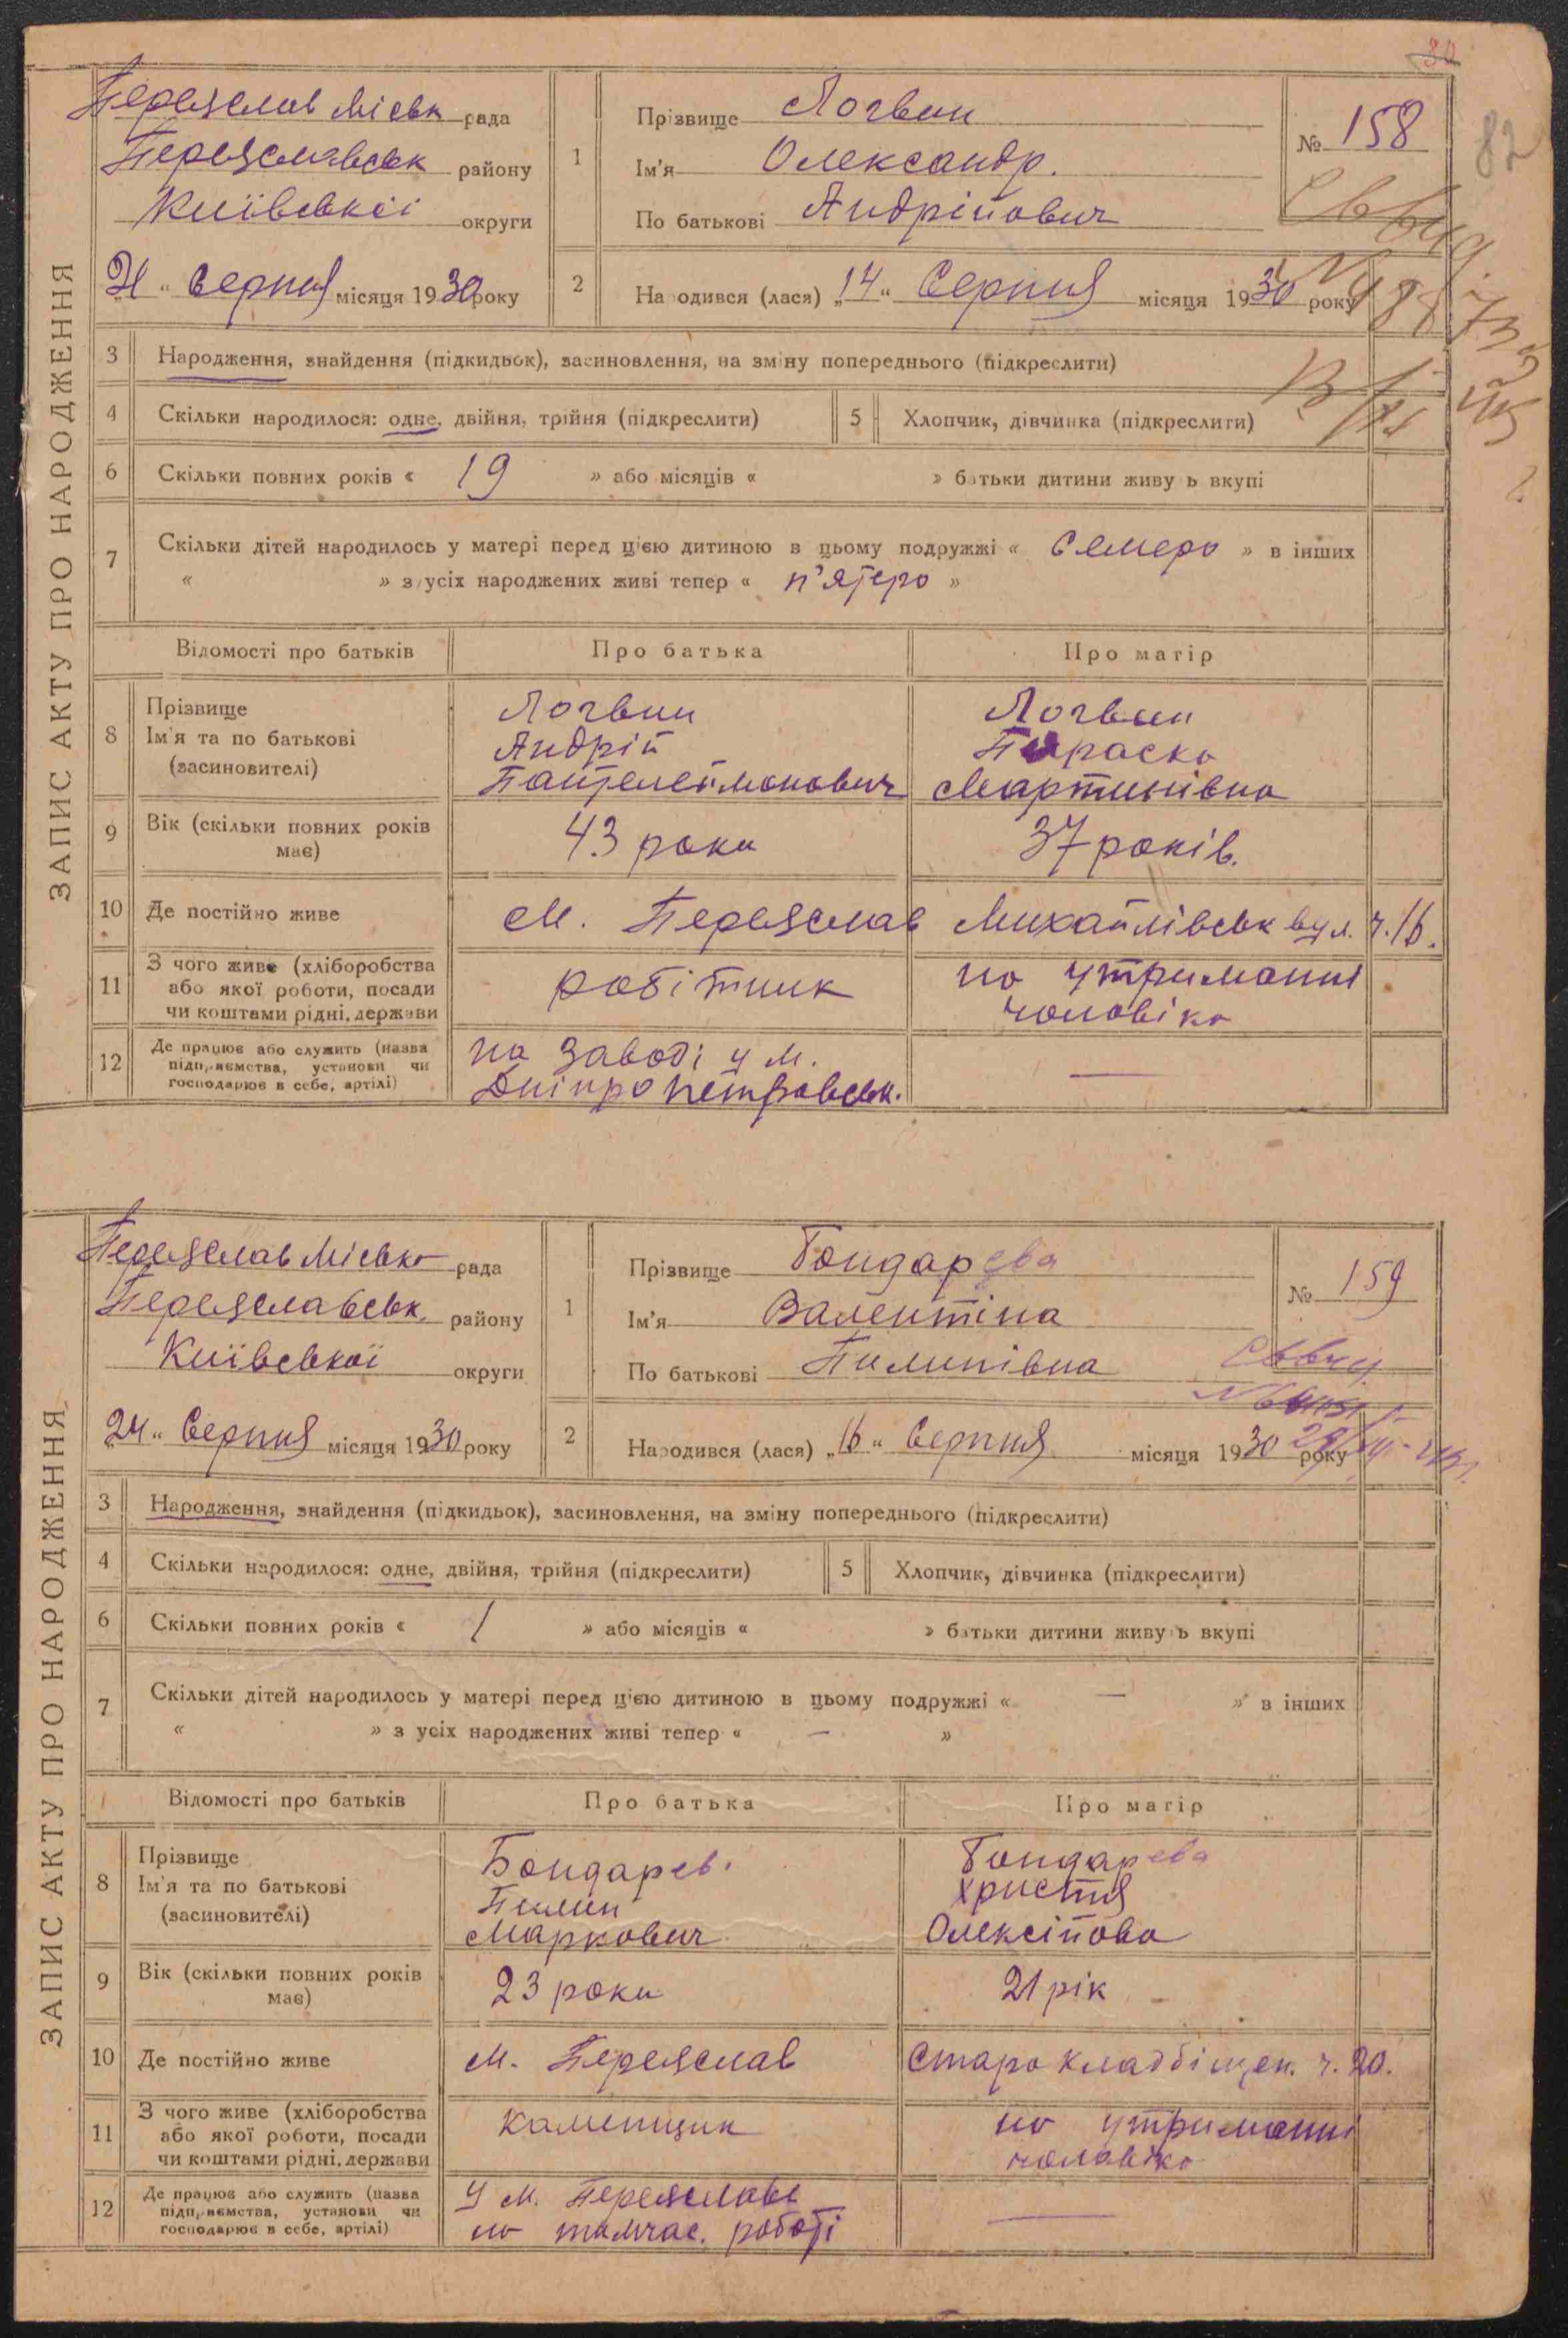 80
82
ЗАПИС АКТУ ПРО НАРОДЖЕННЯ
Переяслав Міськ рада
Переяславськ району
Київської округи
„21“ Серпня місяця 1930 року
1 Прізвище Логвин
Ім'я Олександр.
По батькові Андрійович
№ 158
2 Народився (лася) „14“ Серпня місяця 1930 року
3 Народження, знайдення (підкидьок), засиновлення, на зміну попереднього (підкреслити)
4 Скільки народилося: одне, двійня, трійня (підкреслити) 5 Хлопчик, дівчинка (підкреслити)
6 Скільки повних років « 19 » або місяців « » батьки дитини живуть вкупі
7 Скільки дітей народилось у матері перед цією дитиною в цьому подружжі « семеро » в інших
« » з усіх народжених живі тепер « п'ятеро »
Відомості про батьків Про батька Про матір
8 Прізвище Логвин Логвин
Ім'я та по батькові Андрій Параска
(засиновителі) Пантелеймонович Мартинівна
9 Вік (скільки повних років має) 43 роки 37 років.
10 Де постійно живе м. Переяслав Михайлівськ вул. ч. 16.
11 З чого живе (хліборобства або якої роботи, посади чи коштами рідні, держави робітник на утриманні чоловіка
12 Де працює або служить (назва підприємства, установи чи господарює в себе, артілі) на заводі у м. Дніпропетровськ. —
ЗАПИС АКТУ ПРО НАРОДЖЕННЯ
Переяслав Міська рада
Переяславськ. району
Київської округи
„24“ Серпня місяця 1930 року
1 Прізвище Бондарева
Ім'я Валентіна
По батькові Пилипівна
№ 159
2 Народився (лася) „16“ Серпня місяця 1930 року
3 Народження, знайдення (підкидьок), засиновлення, на зміну попереднього (підкреслити)
4 Скільки народилося: одне, двійня, трійня (підкреслити) 5 Хлопчик, дівчинка (підкреслити)
6 Скільки повних років « 1 » або місяців « » батьки дитини живуть вкупі
7 Скільки дітей народилось у матері перед цією дитиною в цьому подружжі « — » в інших
« » з усіх народжених живі тепер « — »
Відомості про батьків Про батька Про матір
8 Прізвище Бондарев. Бондарева
Ім'я та по батькові Пилип Христя
(засиновителі) Маркович Олексіївна
9 Вік (скільки повних років має) 23 роки 21 рік
10 Де постійно живе м. Переяслав Старокладбіщен. ч. 20.
11 З чого живе (хліборобства або якої роботи, посади чи коштами рідні, держави каменщик на утриманні чоловіка
12 Де працює або служить (назва підприємства, установи чи господарює в себе, артілі) У м. Переяславі на тимчас. роботі —